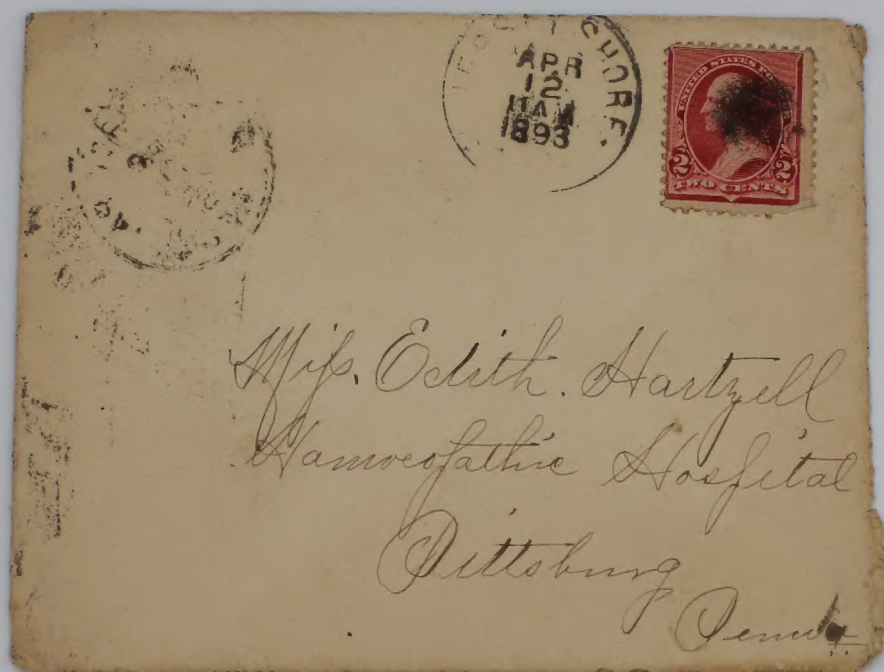 APR
12
11AM
1893
UNITED STATES POSTAGE
2 2
TWO CENTS
Miss. Edith. Hartzell
Hamoeopathic Hospital
Pittsburg
Penna